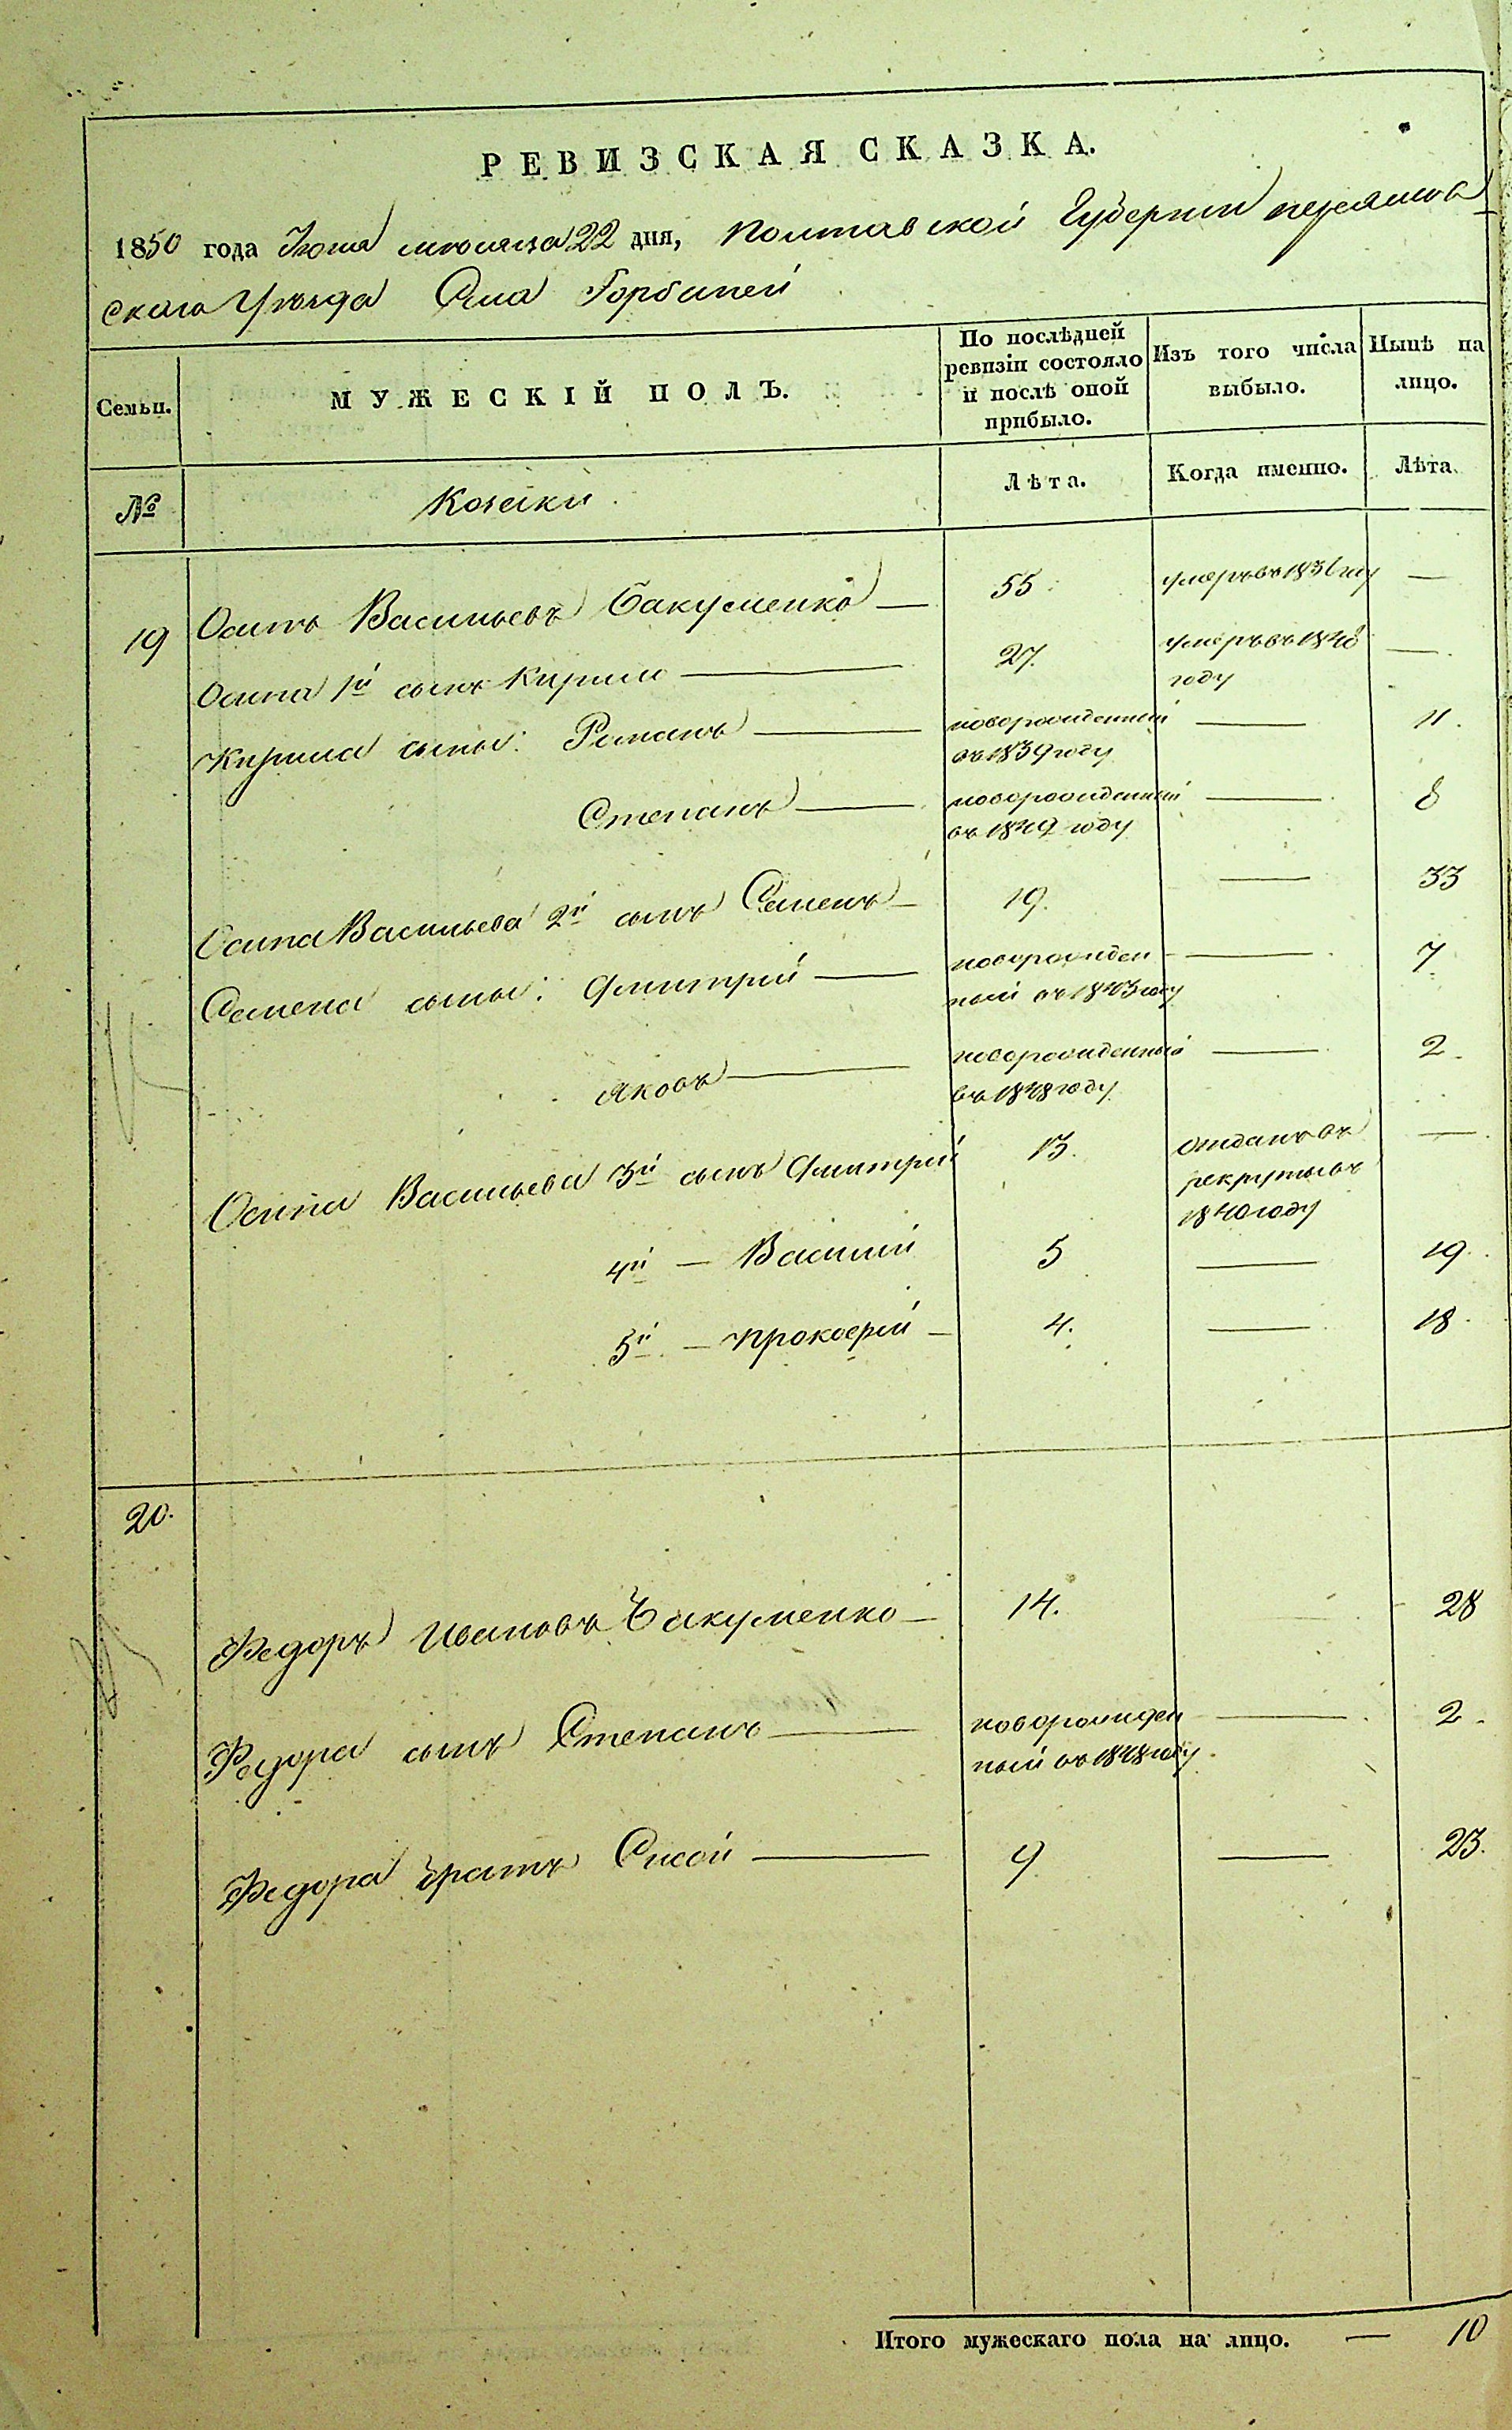 РЕВИЗСКАЯ СКАЗКА.
1850 года Июня месяца 22 дня, Полтавской Губерніи переяслов
скаго Уѣзда Села Горбаней
Семьи.
МУЖЕСКІЙ ПОЛЪ.
По послѣдней ревизіи состояло и послѣ оной прибыло.
Изъ того числа выбыло.
Нынѣ на лицо.
№
Козаки
Лѣта.
Когда именно.
Лѣта.
19 Осипъ Васильевъ Бакуменко — 55 умеръ въ 1836 году —
Осипа 1й сынъ Кирило — 27. умеръ въ 1848 году —
Кирила сыны: Романъ — новорожденный въ 1839 году — 11.
Степанъ — новорожденный въ 1842 году — 8
Осипа Васильева 2й сынъ Семенъ — 19. — 33
Семена сыны: Дмитрій — новорожденный въ 1843 году — 7
Яковъ — новорожденный въ 1848 году — 2.
Осипа Васильева 3й сынъ Дмитрій 13. отданъ въ рекруты въ 1840 году —
4й — Василий 5 — 19.
5й — Прокофий — 4. — 18.
20.
Федоръ Ивановъ Бакуменко — 14. 28
Федора сынъ Степанъ — новорожденный въ 1848 году — 2.
Федора братъ Сисой — 9. — 23.
Итого мужескаго пола на лицо. — 10